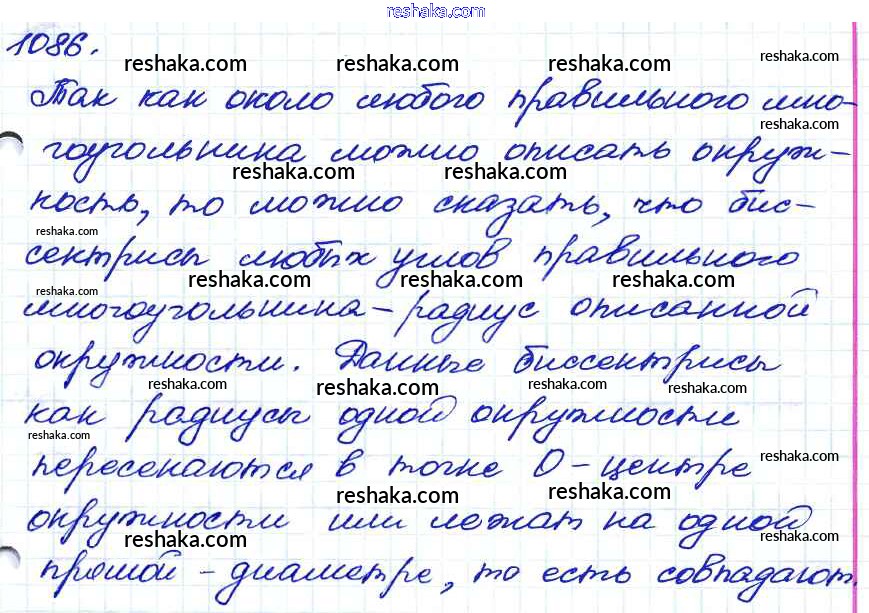 reshaka.com
1086.
reshaka.com reshaka.com reshaka.com
Так как около любого правильного мно-
reshaka.com
гоугольника можно описать окруж-
reshaka.com reshaka.com
ность, то можно сказать, что бис-
reshaka.com
сектрисы любых углов правильного
reshaka.com reshaka.com reshaka.com reshaka.com
многоугольника – радиус описанной
окружности. Данные биссектрисы
reshaka.com reshaka.com reshaka.com
как радиусы одной окружности
reshaka.com reshaka.com
пересекаются в точке О – центре
reshaka.com reshaka.com
окружности или лежат на одной
reshaka.com reshaka.com reshaka.com
прямой – диаметре, то есть совпадают.